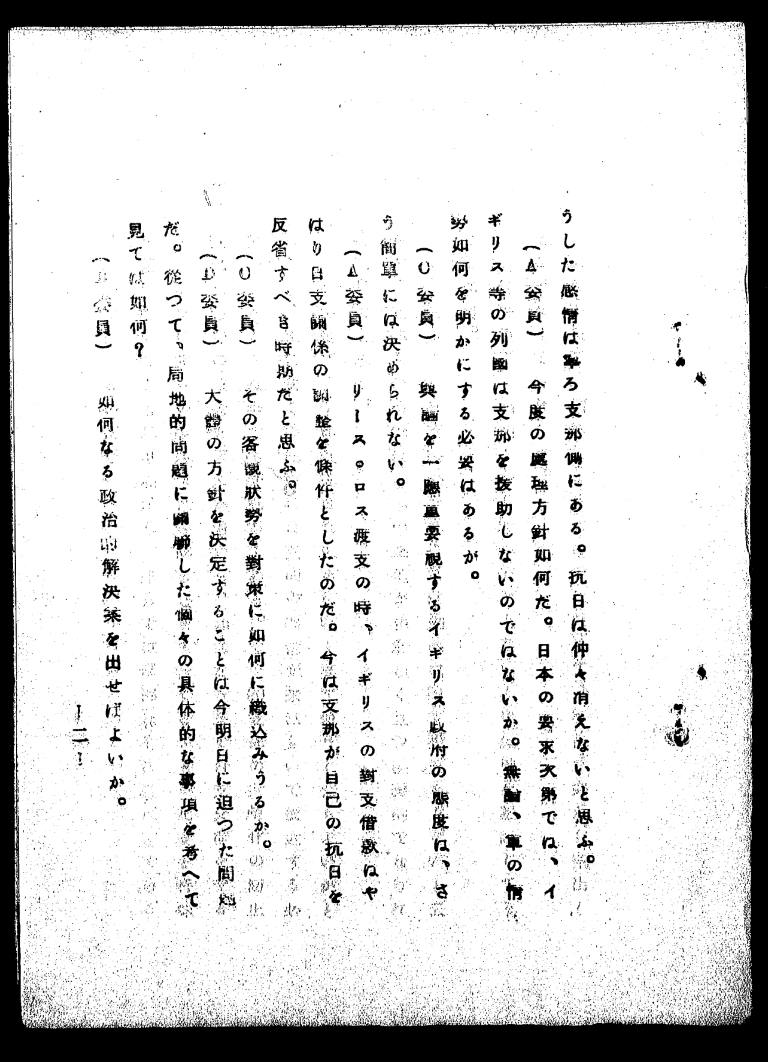 うした感情は寧ろ支那側にある。抗日は仲々消えないと思ふ。
（A委員）　今度の處理方針如何だ。日本の要求次第では、イ
ギリス等の列國は支那を援助しないのではないか。無論、軍の情
勢如何を明かにする必要はあるが。
（C委員）　輿論を一應重要視するイギリス政府の態度は、さ
う簡單には決められない。
（A委員）　リース。ロス渡支の時、イギリスの對支借款はや
はり日支關係の調整を條件としたのだ。今は支那が自己の抗日を
反省すべき時期だと思ふ。
（C委員）　その客觀狀勢を對策に如何に織込みうるか。
（D委員）　大體の方針を決定することは今明日に迫つた問題
だ。從つて、局地的問題に關聯した個々の具体的な事項を考へて
見ては如何？
（委員）　如何なる政治的解決案を出せばよいか。
－二－